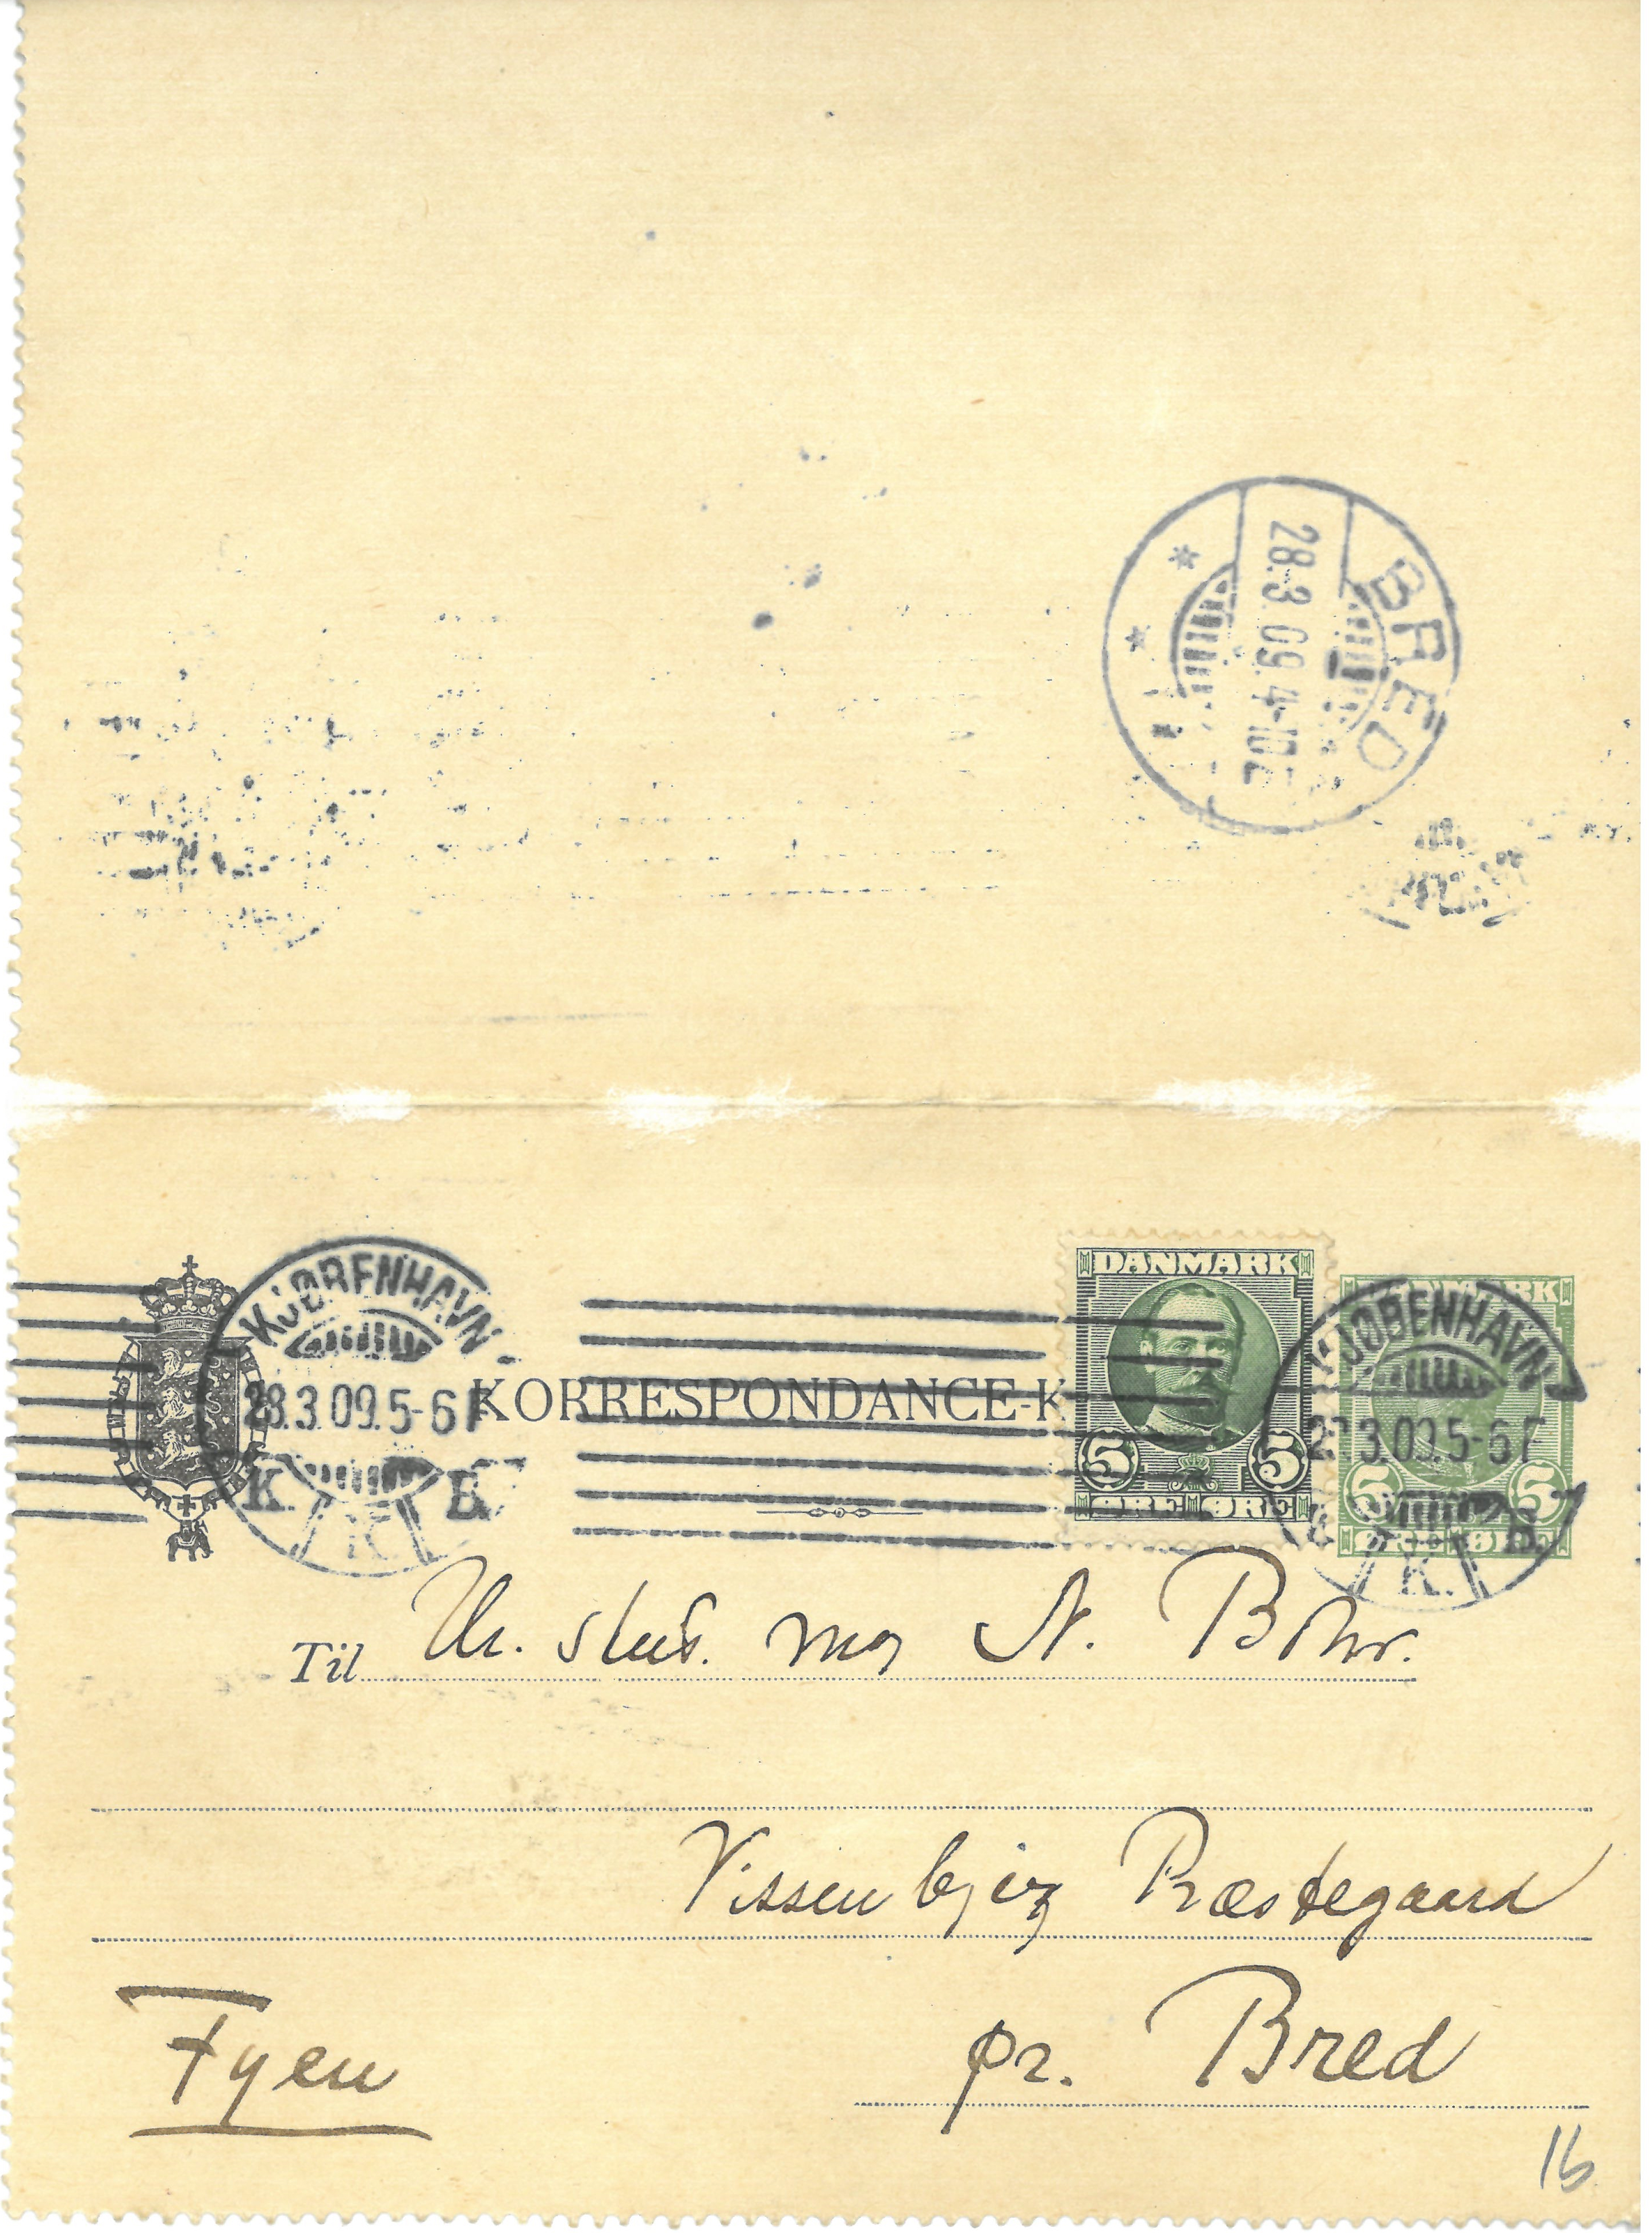 BRED
28.3.09.4-10E
KJØBENHAVN
28.3.09.5-6F
K. B.
K
KORRESPONDANCE-K
DANMARK
5 5
ØRE ØRE
DANMARK
5 5
ØRE ØRE
KJØBENHAVN
28.3.09.5-6F
K. B.
K.
Til Hr. stud. mag N. Bohr.
Vissenbjerg Præstegaard
Fyen
pr. Bred
16